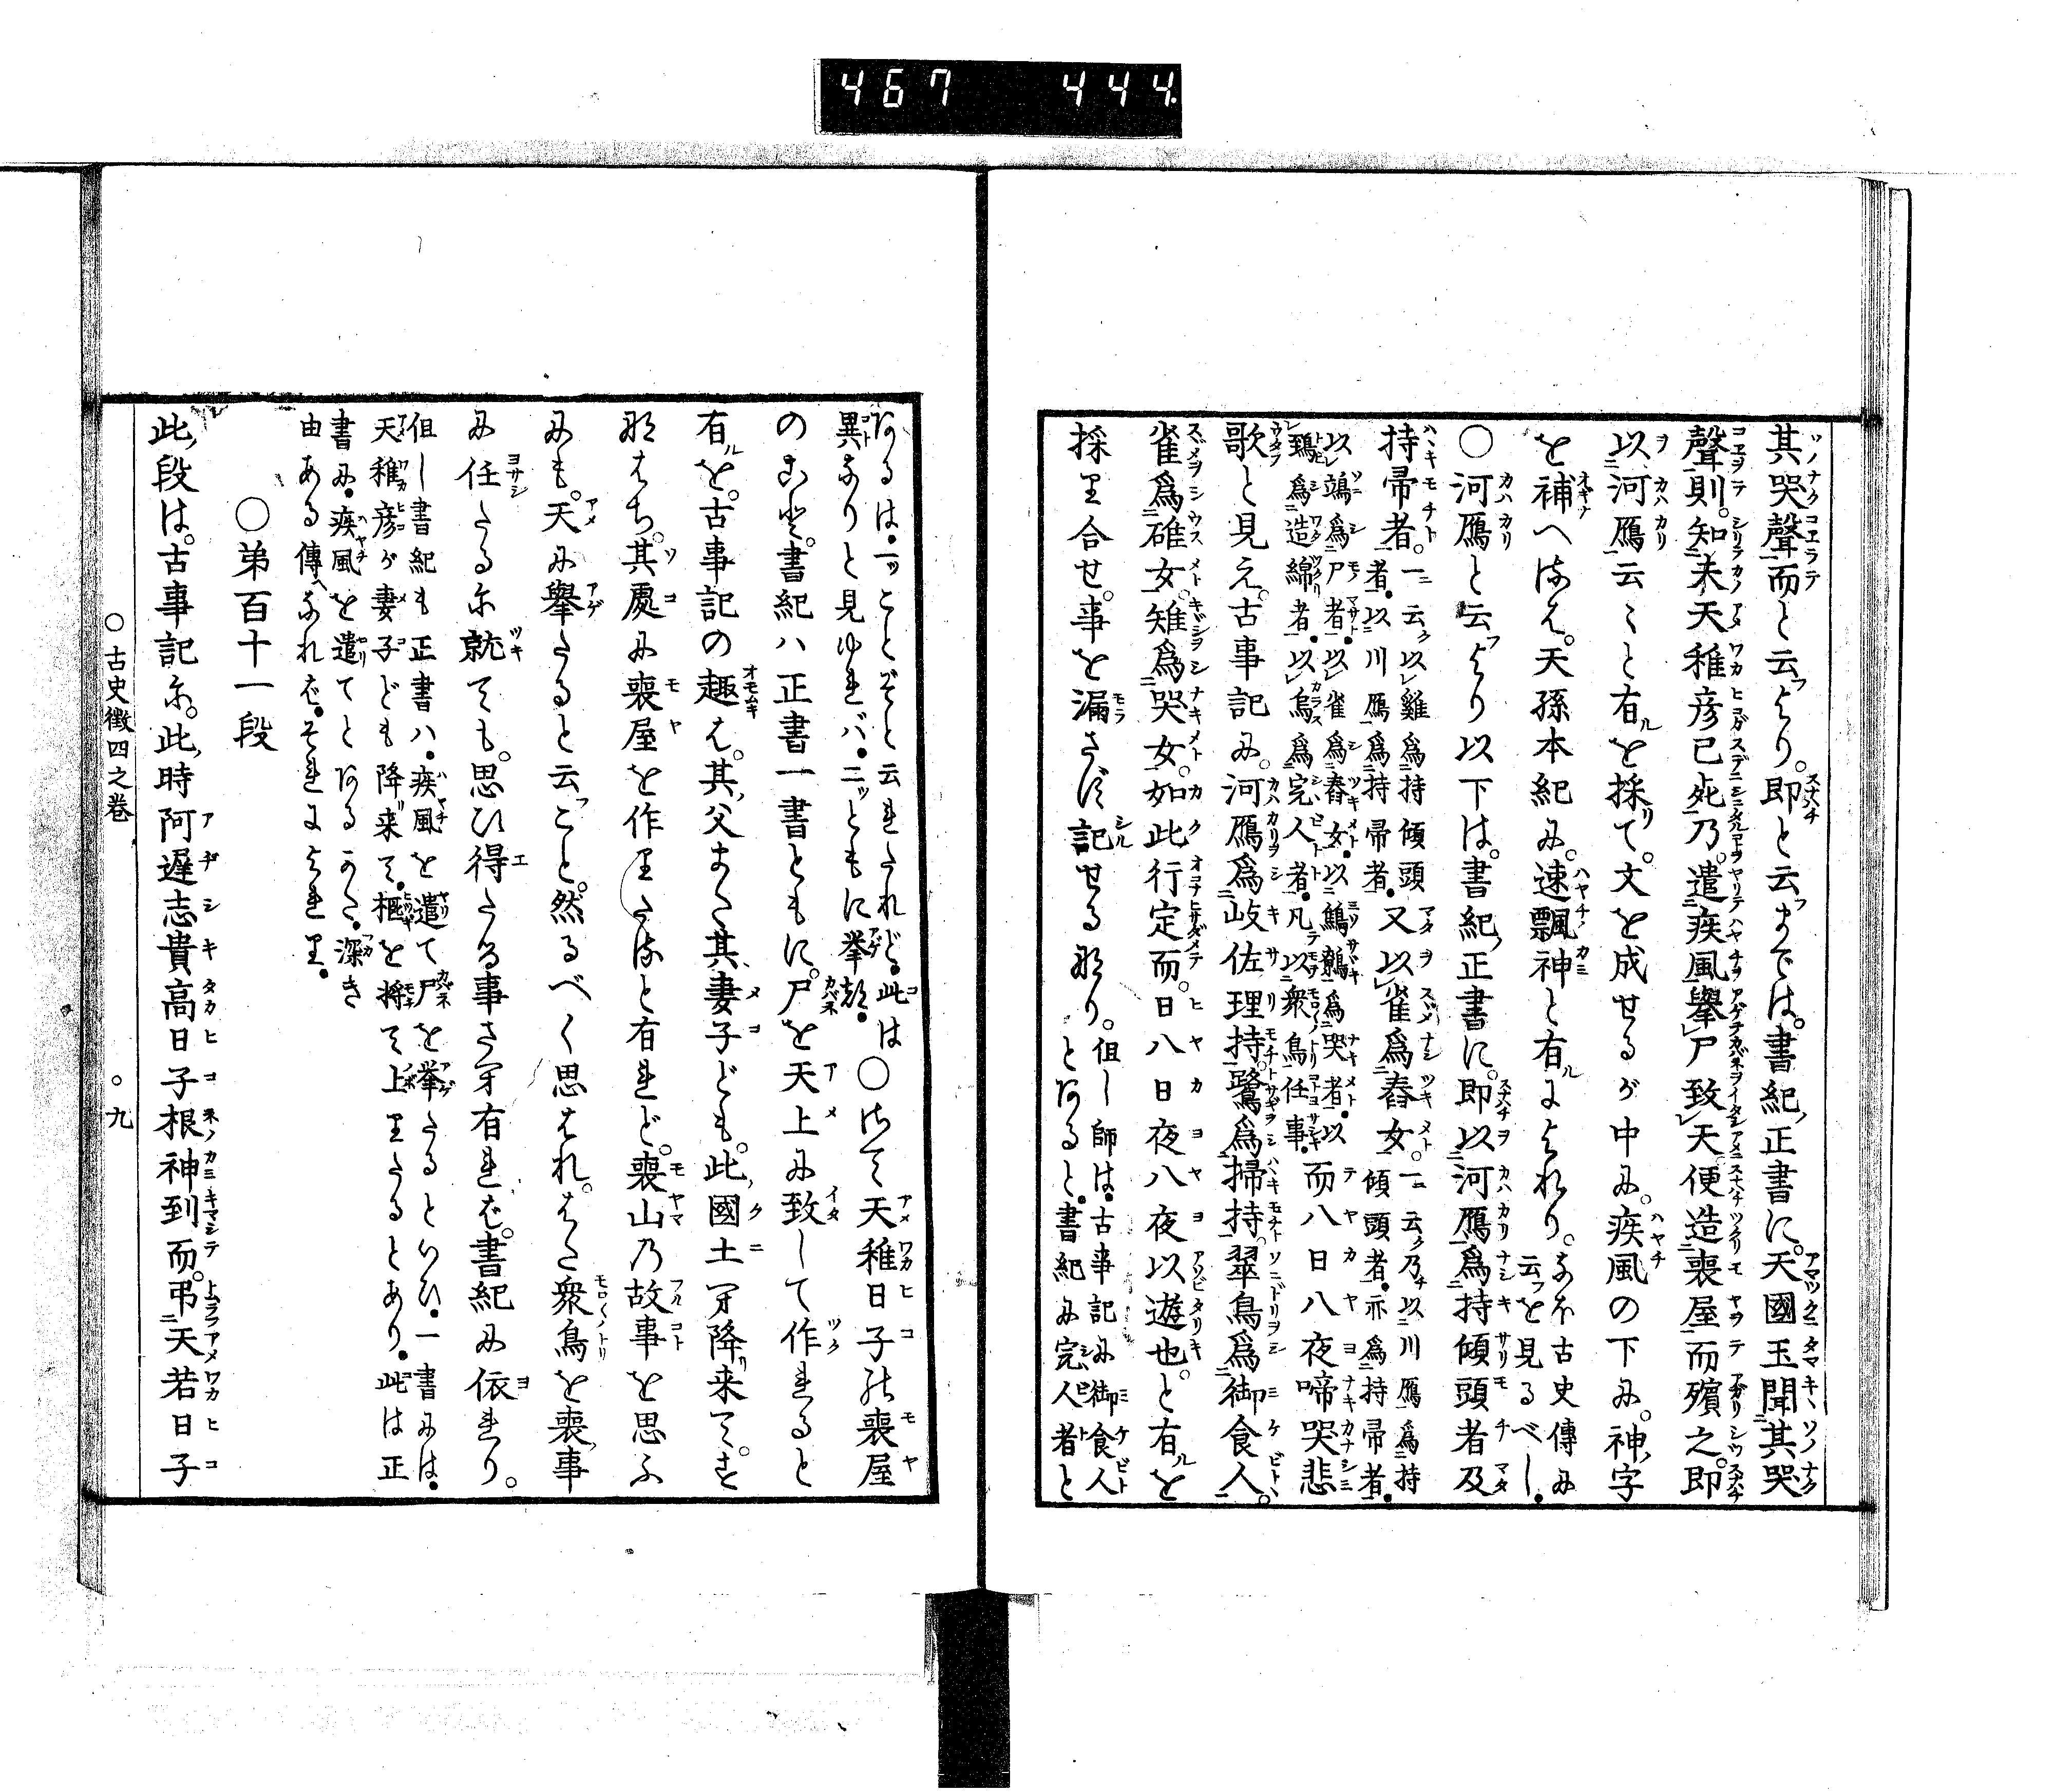 467 444.
其哭聲而と云より。即と云まては。書紀正書に。天國玉聞其哭
聲則。知夫天稚彦已死乃。遣疾風擧尸致天便造喪屋而殯之。即
以河鴈云〻と有を採て。文を成せるが中に。疾風の下に。神字
を補へるは。天孫本紀に。速飄神と有によれり。なほ古史傳に云を見るべし。
○河鴈と云より以下は。書紀正書に。即以河鴈爲持傾頭者及
持帚者。一云以雞爲持傾頭者。以川鴈爲持帚者。又以雀爲舂女。一云乃以川鴈爲持傾頭者。亦爲持帚者。
以鴗爲尸者。以雀爲舂女。以鷦鷯爲哭者。以鵄爲造綿者。以烏爲宍人者。凡以衆鳥任事。而八日八夜啼哭悲
歌と見え。古事記に。河鴈爲岐佐理持。鷺爲掃持。翠鳥爲御食人。
雀爲碓女。雉爲哭女。如此行定而。日八日夜八夜以遊也。と有を
採り合せ。事を漏さず記せるなり。但し師は。古事記に御食人とあると。書紀に宍人者と
あるは。一ッことぞと云れたれど。此は異なりと見ゆれバ。二ッともに挙つ。○さて天稚日子の喪屋
のこと。書紀ハ正書一書ともに。尸を天上に致して作れると
有を。古事記の趣は。其父また其妻子ども。此國土に降来て。す
なはち。其處に喪屋を作りたると有れど。喪山乃故事を思ふ
にも。天に擧たると云こと。然るべく思はれ。はた衆鳥を喪事
に任たるに就ても。思ひ得たる事さへ有れば。書紀に依れり。
但し書紀も正書ハ。疾風を遣て尸を挙たるといひ。一書には。
天稚彦が妻子ども降来て。柩を将て上りたるとあり。此は正
書に。疾風を遣てとあるかた。深き
由ある傳なれば。それによれり。
○弟百十一段
此段は。古事記に。此時阿遲志貴高日子根神到而。弔天若日子
○古史徴四之巻 ○九